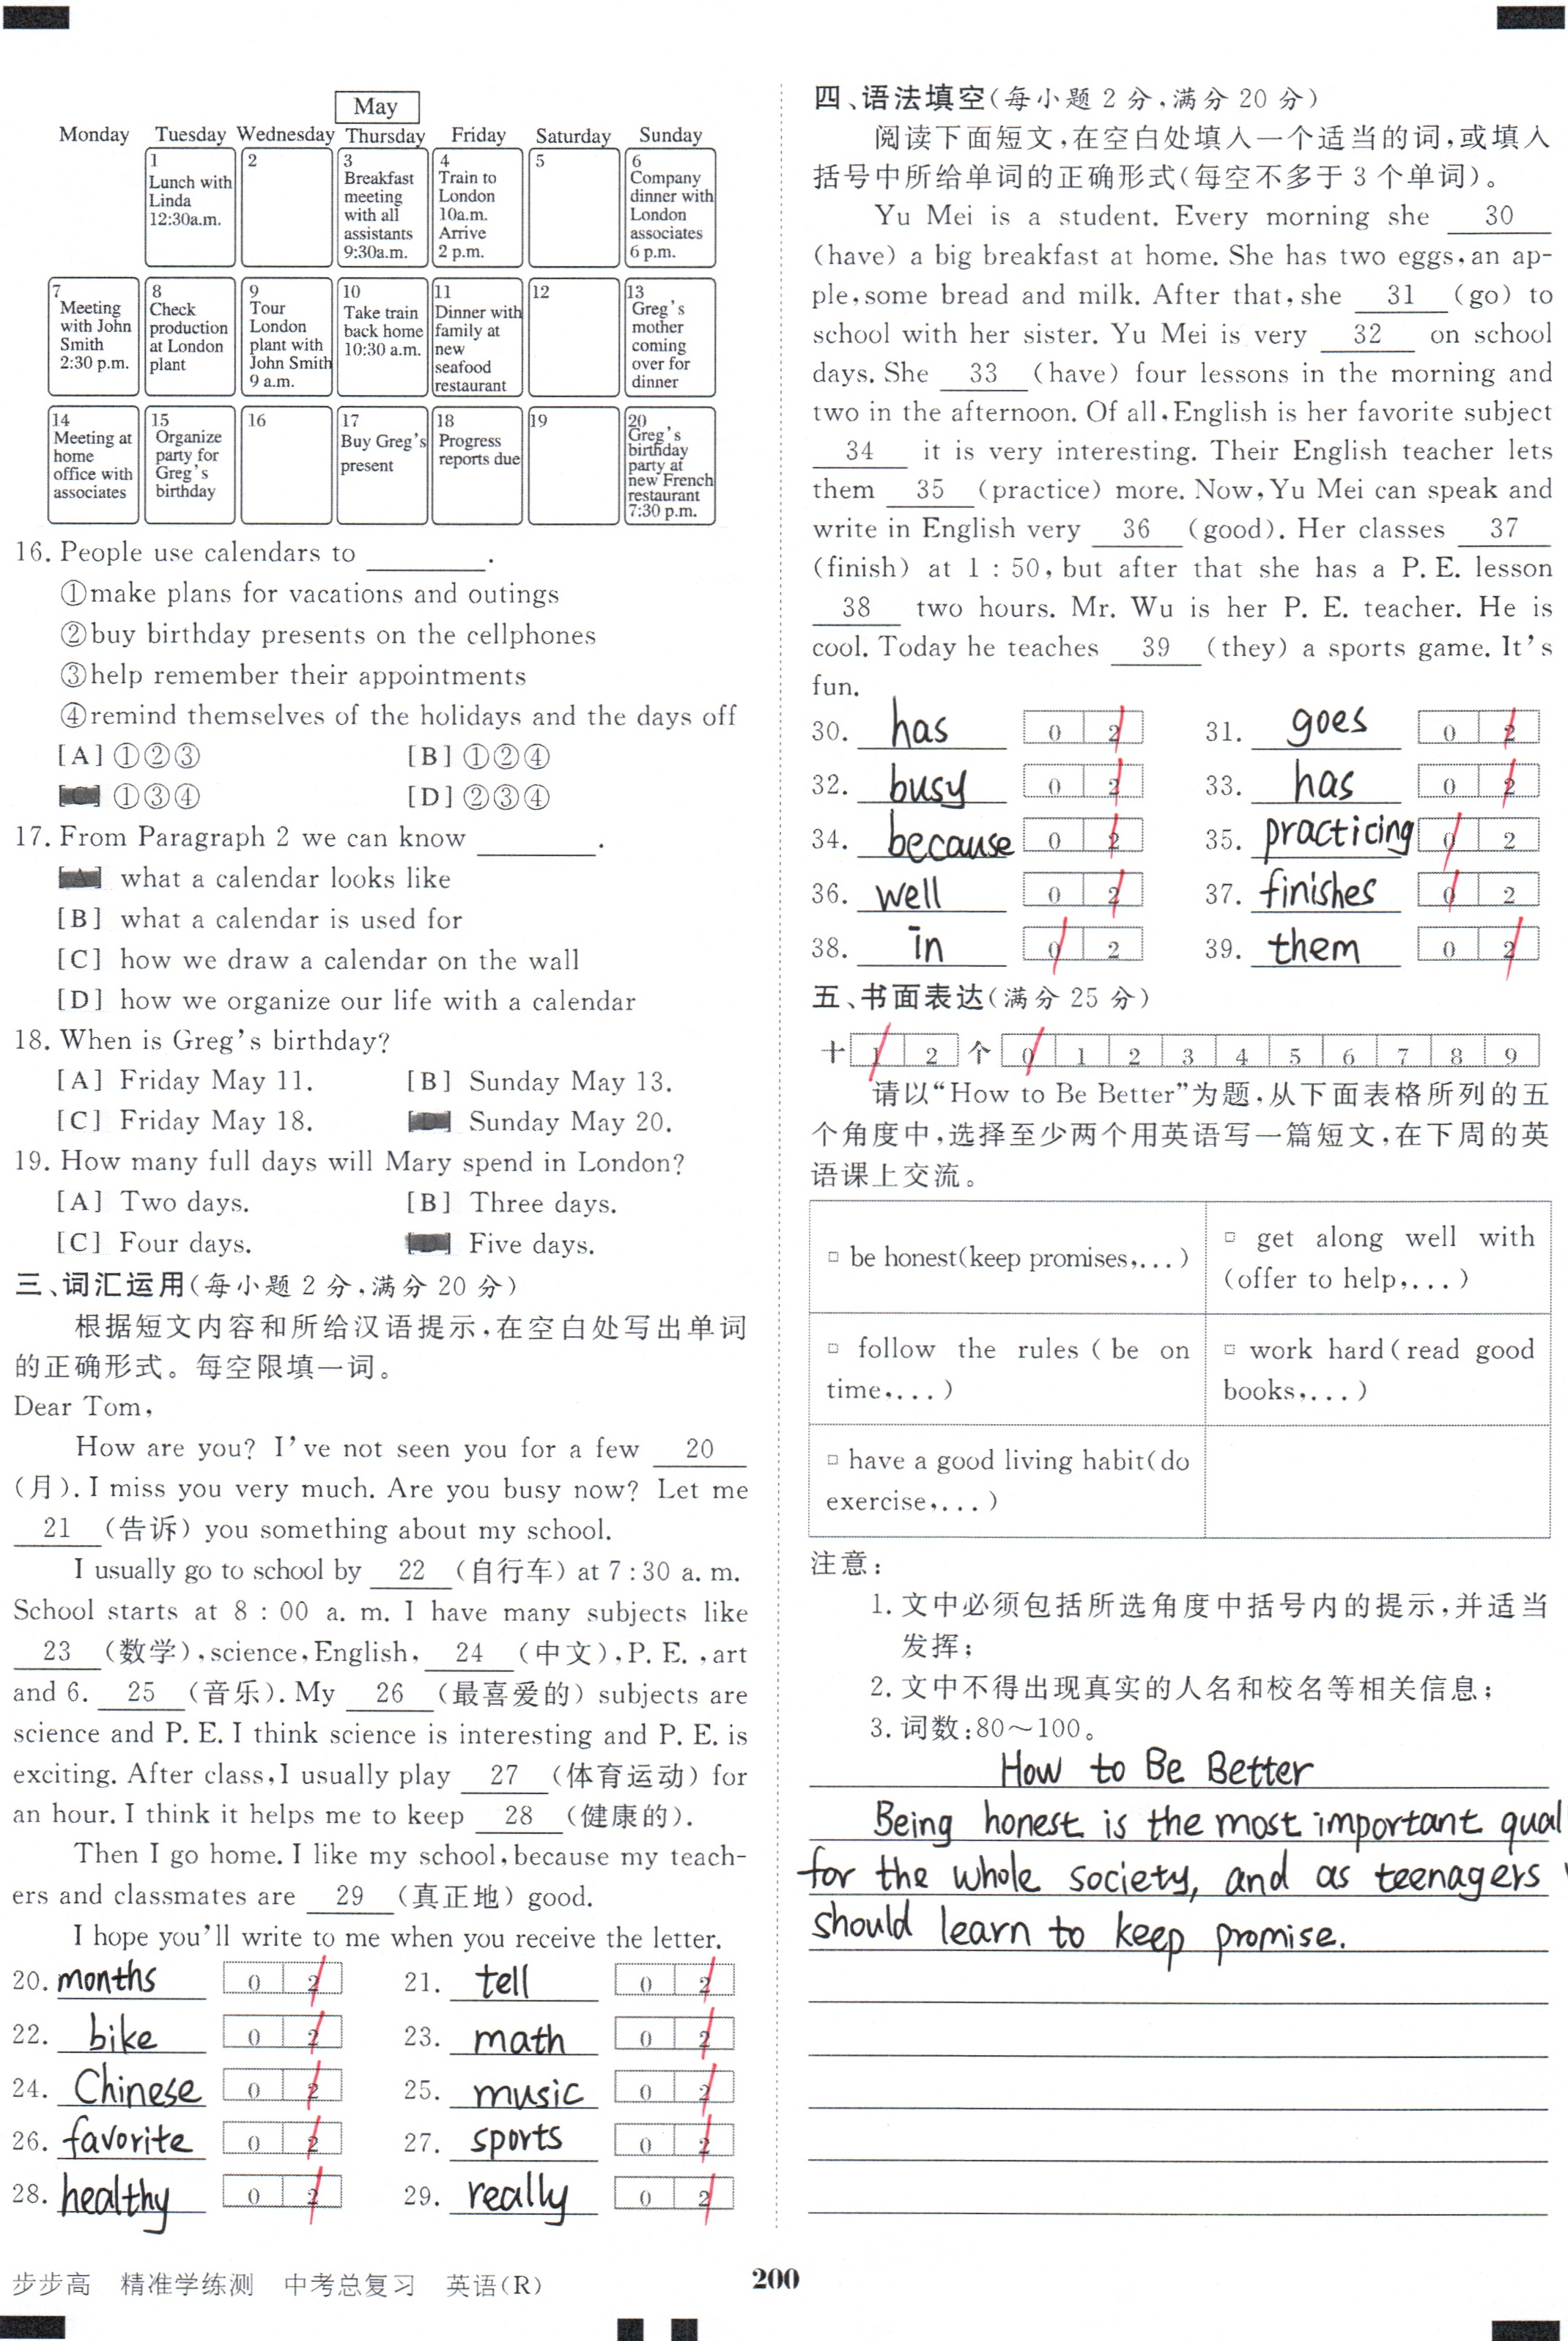 May
Monday Tuesday Wednesday Thursday Friday Saturday Sunday
1
Lunch with
Linda
12:30a.m.
2
3
Breakfast
meeting
with all
assistants
9:30a.m.
4
Train to
London
10a.m.
Arrive
2 p.m.
5
6
Company
dinner with
London
associates
6 p.m.
7
Meeting
with John
Smith
2:30 p.m.
8
Check
production
at London
plant
9
Tour
London
plant with
John Smith
9 a.m.
10
Take train
back home
10:30 a.m.
11
Dinner with
family at
new
seafood
restaurant
12
13
Greg's
mother
coming
over for
dinner
14
Meeting at
home
office with
associates
15
Organize
party for
Greg's
birthday
16
17
Buy Greg's
present
18
Progress
reports due
19
20
Greg's
birthday
party at
new French
restaurant
7:30 p.m.
16. People use calendars to ________.
①make plans for vacations and outings
②buy birthday presents on the cellphones
③help remember their appointments
④remind themselves of the holidays and the days off
[A] ①②③ [B] ①②④
[C] ①③④ [D] ②③④
17. From Paragraph 2 we can know ________.
[A] what a calendar looks like
[B] what a calendar is used for
[C] how we draw a calendar on the wall
[D] how we organize our life with a calendar
18. When is Greg's birthday?
[A] Friday May 11. [B] Sunday May 13.
[C] Friday May 18. [D] Sunday May 20.
19. How many full days will Mary spend in London?
[A] Two days. [B] Three days.
[C] Four days. [D] Five days.
三、词汇运用(每小题 2 分,满分 20 分)
根据短文内容和所给汉语提示,在空白处写出单词
的正确形式。每空限填一词。
Dear Tom,
How are you? I've not seen you for a few 20
(月). I miss you very much. Are you busy now? Let me
21 (告诉) you something about my school.
I usually go to school by 22 (自行车) at 7:30 a. m.
School starts at 8 : 00 a. m. I have many subjects like
23 (数学), science, English, 24 (中文), P. E. , art
and 6. 25 (音乐). My 26 (最喜爱的) subjects are
science and P. E. I think science is interesting and P. E. is
exciting. After class, I usually play 27 (体育运动) for
an hour. I think it helps me to keep 28 (健康的).
Then I go home. I like my school, because my teach-
ers and classmates are 29 (真正地) good.
I hope you'll write to me when you receive the letter.
20. months 0 2 21. tell 0 2
22. bike 0 2 23. math 0 2
24. Chinese 0 2 25. music 0 2
26. favorite 0 2 27. sports 0 2
28. healthy 0 2 29. really 0 2
四、语法填空(每小题 2 分,满分 20 分)
阅读下面短文,在空白处填入一个适当的词,或填入
括号中所给单词的正确形式(每空不多于 3 个单词)。
Yu Mei is a student. Every morning she 30
(have) a big breakfast at home. She has two eggs, an ap-
ple, some bread and milk. After that, she 31 (go) to
school with her sister. Yu Mei is very 32 on school
days. She 33 (have) four lessons in the morning and
two in the afternoon. Of all, English is her favorite subject
34 it is very interesting. Their English teacher lets
them 35 (practice) more. Now, Yu Mei can speak and
write in English very 36 (good). Her classes 37
(finish) at 1 : 50, but after that she has a P. E. lesson
38 two hours. Mr. Wu is her P. E. teacher. He is
cool. Today he teaches 39 (they) a sports game. It's
fun.
30. has 0 2 31. goes 0 2
32. busy 0 2 33. has 0 2
34. because 0 2 35. practicing 0 2
36. well 0 2 37. finishes 0 2
38. in 0 2 39. them 0 2
五、书面表达(满分 25 分)
十 1 2 个 0 1 2 3 4 5 6 7 8 9
请以“How to Be Better”为题,从下面表格所列的五
个角度中,选择至少两个用英语写一篇短文,在下周的英
语课上交流。
□ be honest(keep promises,...)
□ get along well with
(offer to help,...)
□ follow the rules (be on
time,...)
□ work hard(read good
books,...)
□ have a good living habit(do
exercise,...)
注意:
1. 文中必须包括所选角度中括号内的提示,并适当
发挥;
2. 文中不得出现真实的人名和校名等相关信息;
3. 词数:80～100。
How to Be Better
Being honest is the most important qual
for the whole society, and as teenagers
should learn to keep promise.
步步高 精准学练测 中考总复习 英语(R)
200